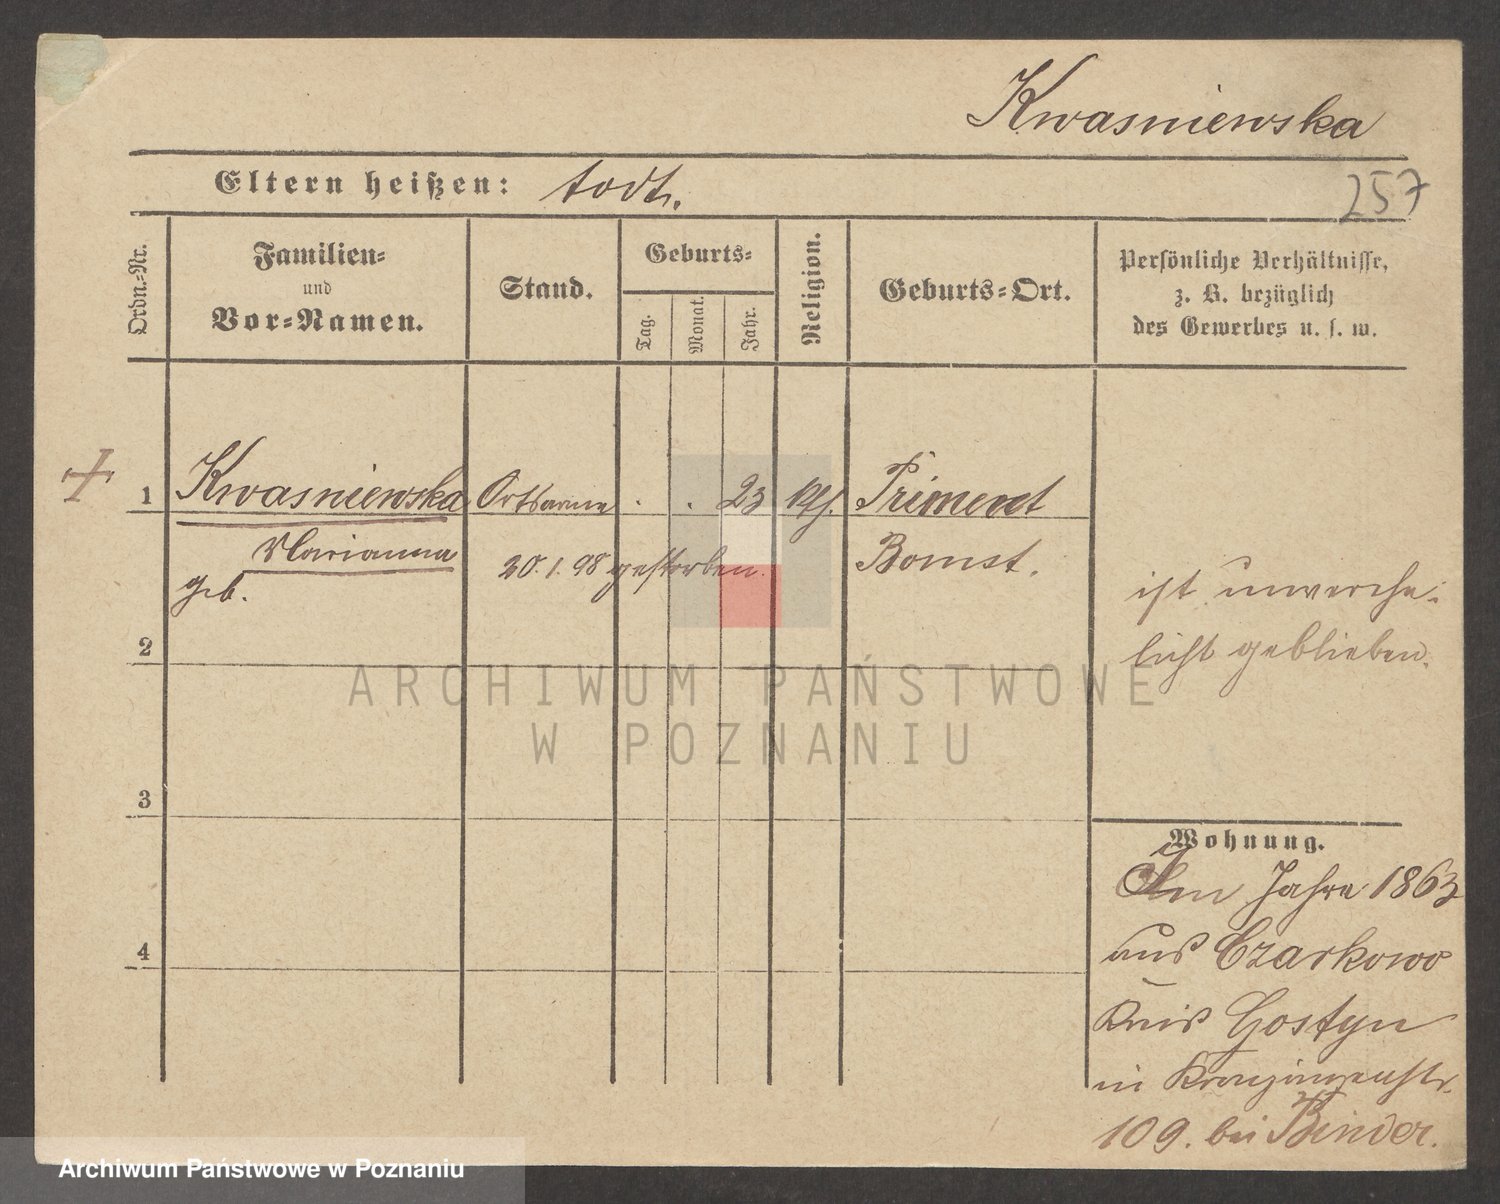 Kwasniewska
Eltern heißen: todt.
257
Ordn.-Nr.
Familien-
und
Vor-Namen.
Stand.
Geburts-
Tag.
Monat.
Jahr.
Religion.
Geburts-Ort.
Persönliche Verhältnisse,
z. B. bezüglich
des Gewerbes u. s. w.
1 Kwasniewska Ortsarme . . 23 kth. Priment
Marianna 20.1.98 gestorben. Bomst.
geb.
ist unverehe-
licht geblieben.
2
3
4
Wohnung.
Im Jahre 1863
aus Czarkowo
Kreis Gostyn
in
109. bei Binder.
ARCHIWUM PAŃSTWOWE
W POZNANIU
Archiwum Państwowe w Poznaniu